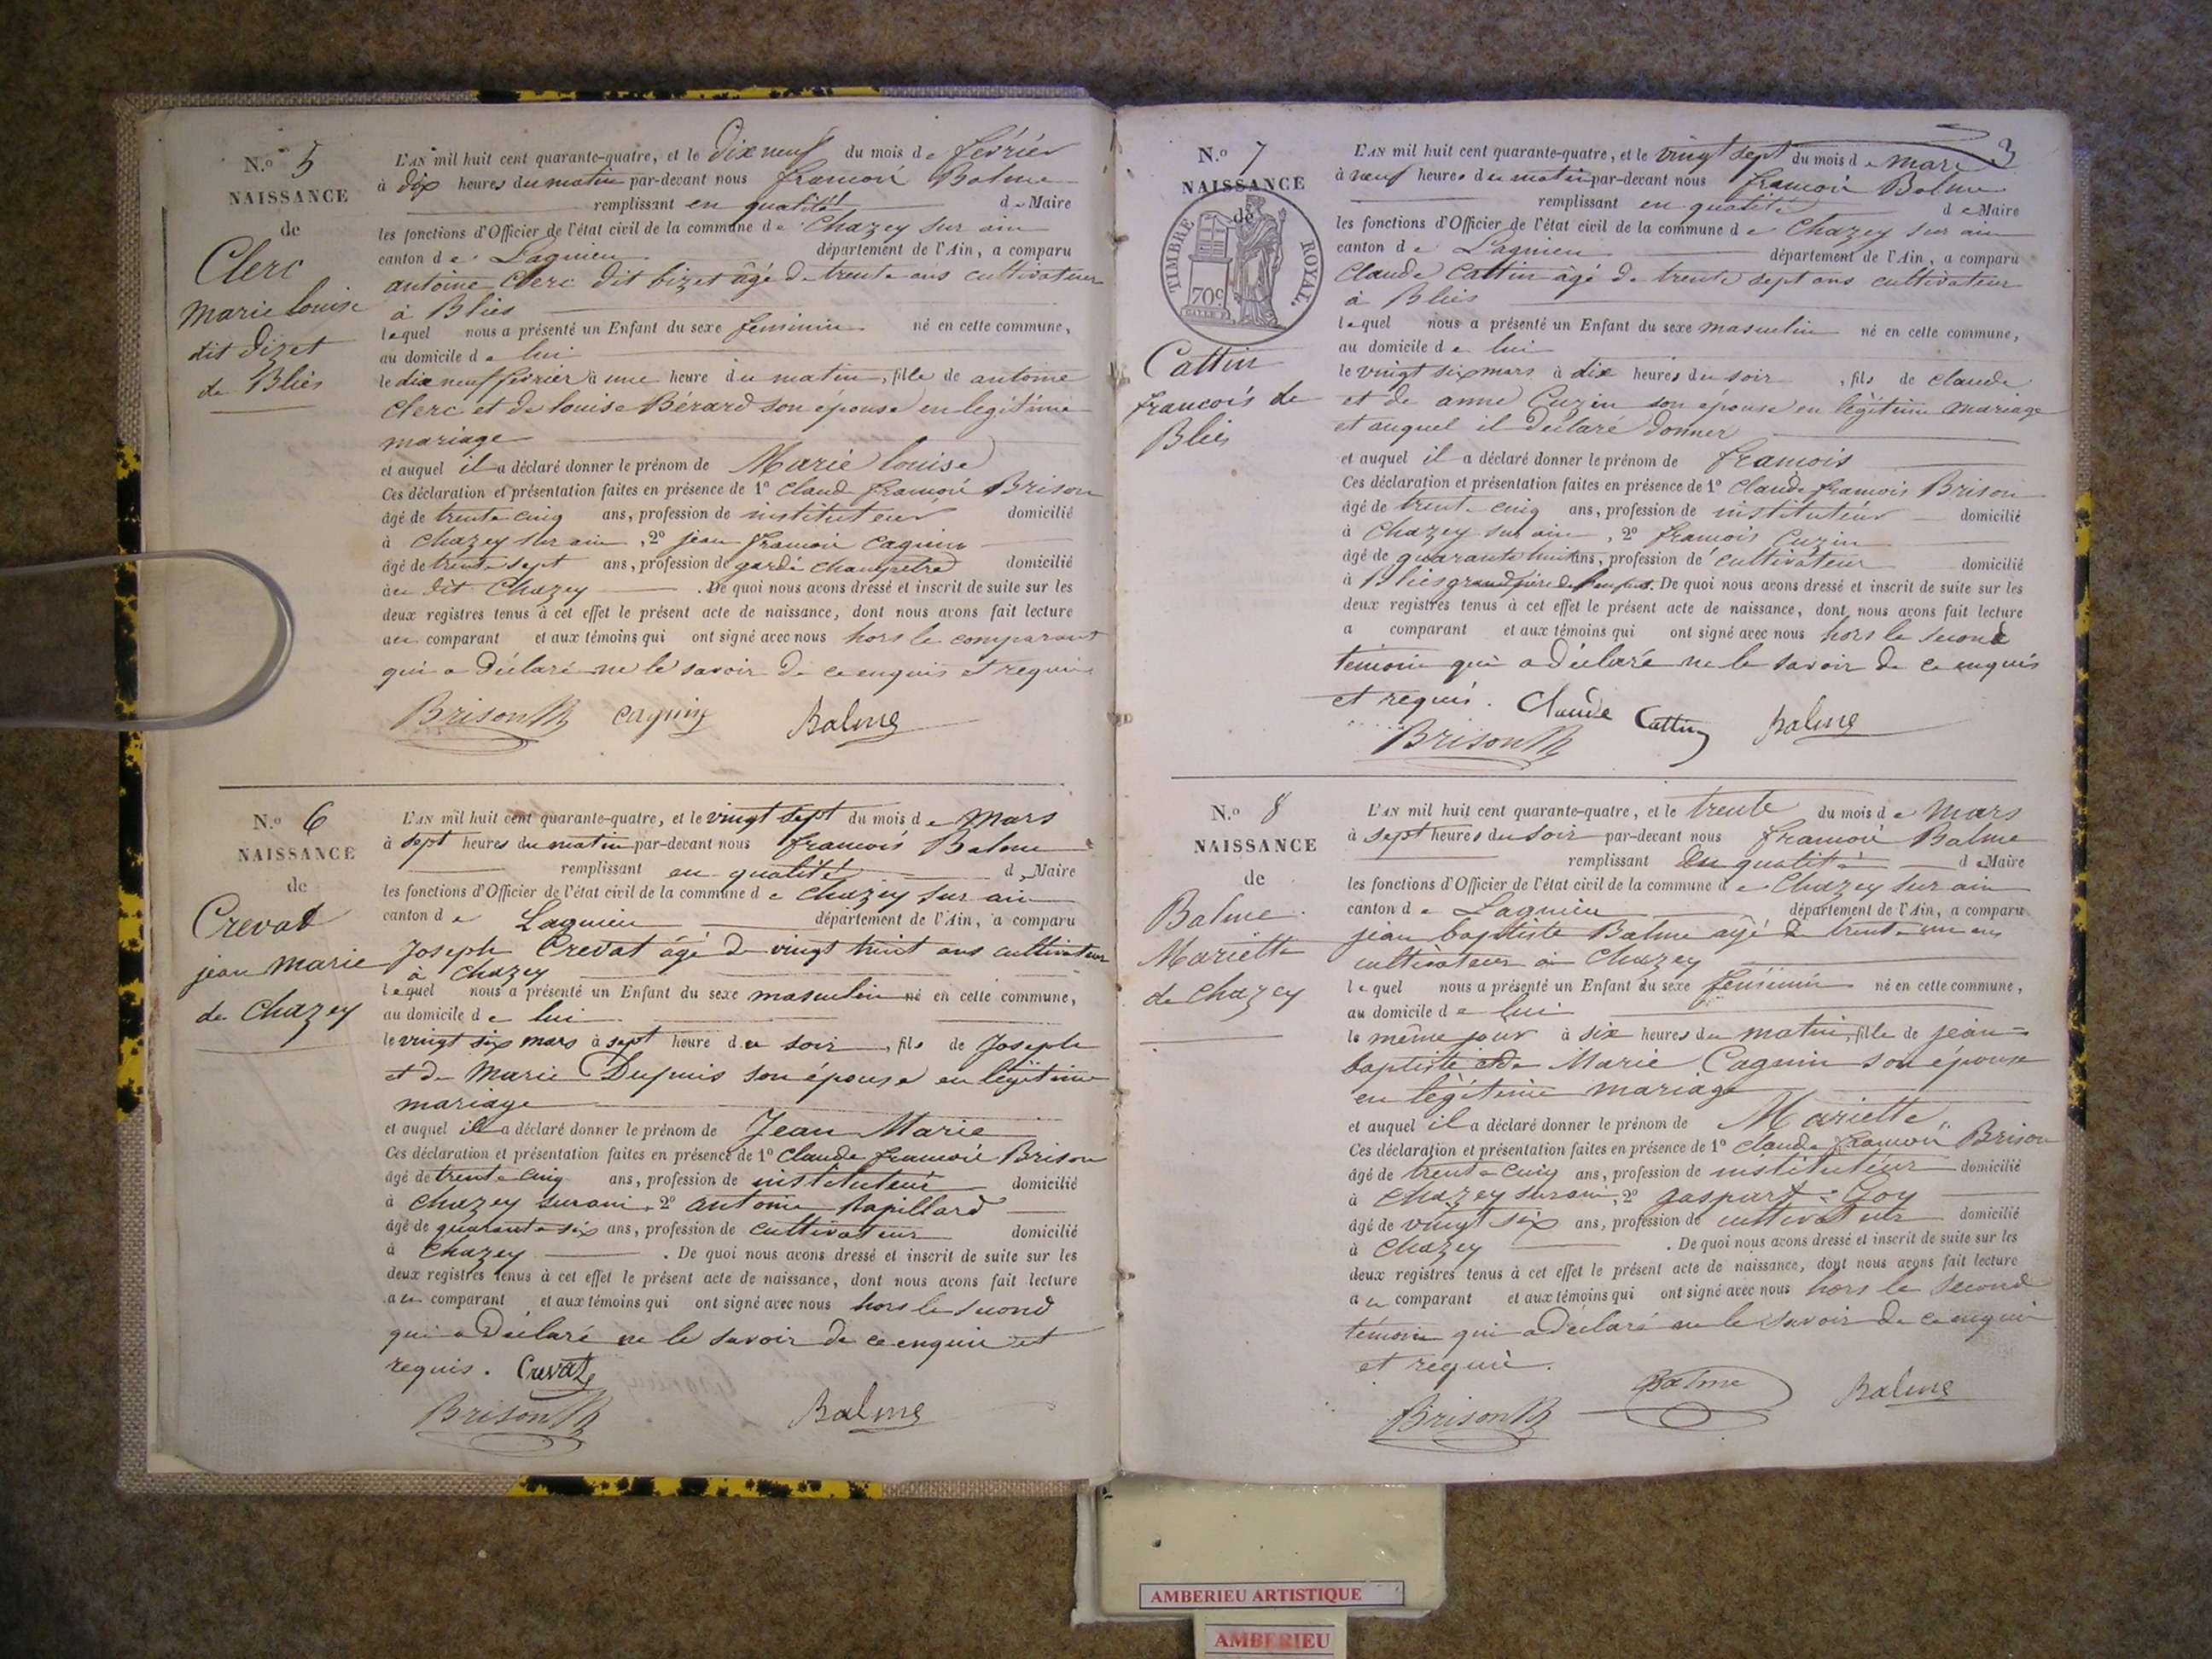 N.o 5
NAISSANCE
de
Clerc
marie louise
dit bizet
de Bliès
L'AN mil huit cent quarante-quatre, et le dix neuf du mois de février
à dix heures du matin par-devant nous françois Balme
remplissant en qualité de Maire
les fonctions d'Officier de l'état civil de la commune de Chazey sur ain
canton de Lagnieu département de l'Ain, a comparu
antoine Clerc dit bizet âgé de trente ans cultivateur
à Bliès
lequel nous a présenté un Enfant du sexe feminin né en cette commune,
au domicile de lui
le dix neuf février à une heure du matin, fille de antoine
Clerc et de louise Bérard son épouse en legitime
mariage
et auquel il a déclaré donner le prénom de Marie louise
Ces déclaration et présentation faites en présence de 1o Claude françois Brison
âgé de trente cinq ans, profession de instituteur domicilié
à Chazey sur ain, 2o jean françois Cagnin
âgé de trente sept ans, profession de garde champetre domicilié
au dit Chazey. De quoi nous avons dressé et inscrit de suite sur les
deux registres tenus à cet effet le présent acte de naissance, dont nous avons fait lecture
au comparant et aux témoins qui ont signé avec nous hors le comparant
qui a déclaré ne le savoir de ce enquis et requis
Brison Cagnin Balme
N.o 6
NAISSANCE
de
Crevat
jean marie
de Chazey
L'AN mil huit cent quarante-quatre, et le vingt sept du mois de Mars
à sept heures du matin par-devant nous françois Balme
remplissant en qualité de Maire
les fonctions d'Officier de l'état civil de la commune de Chazey sur ain
canton de Lagnieu département de l'Ain, a comparu
Joseph Crevat âgé de vingt huit ans cultivateur
à Chazey
lequel nous a présenté un Enfant du sexe masculin né en cette commune,
au domicile de lui
le vingt six mars à sept heure du soir, fils de Joseph
et de Marie Dupuis son épouse en légitime
mariage
et auquel il a déclaré donner le prénom de Jean Marie
Ces déclaration et présentation faites en présence de 1o Claude françois Brison
âgé de trente cinq ans, profession de instituteur domicilié
à Chazey sur ain, 2o antoine Papillard
âgé de quarante six ans, profession de cultivateur domicilié
à Chazey. De quoi nous avons dressé et inscrit de suite sur les
deux registres tenus à cet effet le présent acte de naissance, dont nous avons fait lecture
au comparant et aux témoins qui ont signé avec nous hors le second
qui a déclaré ne le savoir de ce enquis et
requis. Crevat
Brison Balme
3
N.o 7
NAISSANCE
de
TIMBRE ROYAL.
70c
Cattin
francois de
Bliès
L'AN mil huit cent quarante-quatre, et le vingt sept du mois de mars
à neuf heures du matin par-devant nous françois Balme
remplissant en qualité de Maire
les fonctions d'Officier de l'état civil de la commune de Chazey sur ain
canton de Lagnieu département de l'Ain, a comparu
Claude Cattin âgé de trente sept ans cultivateur
à Bliès
lequel nous a présenté un Enfant du sexe masculin né en cette commune,
au domicile de lui
le vingt six mars à dix heures du soir, fils de claude
et de anne Cuzin son épouse en légitime mariage
et auquel il déclaré donner
et auquel il a déclaré donner le prénom de françois
Ces déclaration et présentation faites en présence de 1o Claude françois Brison
âgé de trente cinq ans, profession de instituteur domicilié
à Chazey sur ain, 2o françois Cuzin
âgé de quarante huit ans, profession de cultivateur domicilié
à Bliès grand père de l'enfant. De quoi nous avons dressé et inscrit de suite sur les
deux registres tenus à cet effet le présent acte de naissance, dont nous avons fait lecture
a comparant et aux témoins qui ont signé avec nous hors le second
témoin qui a déclaré ne le savoir de ce enquis
et requis. Claude Cattin Balme
Brison
N.o 8
NAISSANCE
de
Balme
Mariette
de Chazey
L'AN mil huit cent quarante-quatre, et le trente du mois de Mars
à sept heures du soir par-devant nous françois Balme
remplissant en qualité de Maire
les fonctions d'Officier de l'état civil de la commune de Chazey sur ain
canton de Lagnieu département de l'Ain, a comparu
jean baptiste Balme âgé de trente un ans
cultivateur à Chazey
lequel nous a présenté un Enfant du sexe féminin né en cette commune,
au domicile de lui
le même jour à six heures du matin, fille de jean=
baptiste et de Marie Cagnin son épouse
en légitime mariage
et auquel il a déclaré donner le prénom de Mariette
Ces déclaration et présentation faites en présence de 1o Claude françois Brison
âgé de trente cinq ans, profession de instituteur domicilié
à Chazey sur ain, 2o gaspart Goy
âgé de vingt six ans, profession de cultivateur domicilié
à Chazey. De quoi nous avons dressé et inscrit de suite sur les
deux registres tenus à cet effet le présent acte de naissance, dont nous avons fait lecture
au comparant et aux témoins qui ont signé avec nous hors le second
témoin qui a déclaré ne le savoir de ce enquis
et requis.
Brison Balme Balme
AMBERIEU ARTISTIQUE
AMBERIEU